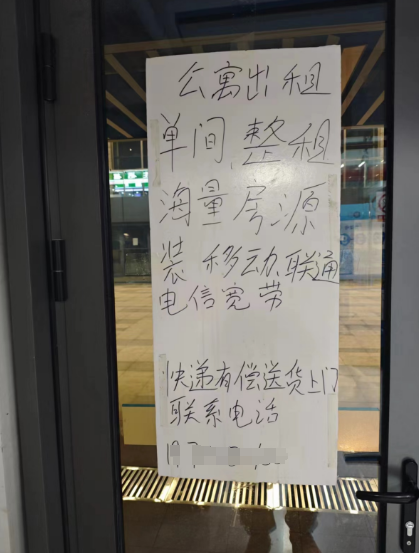 公寓出租
单间 整租
海量房源
装 移动 联通
电信宽带
快递有偿送货上门
联系电话